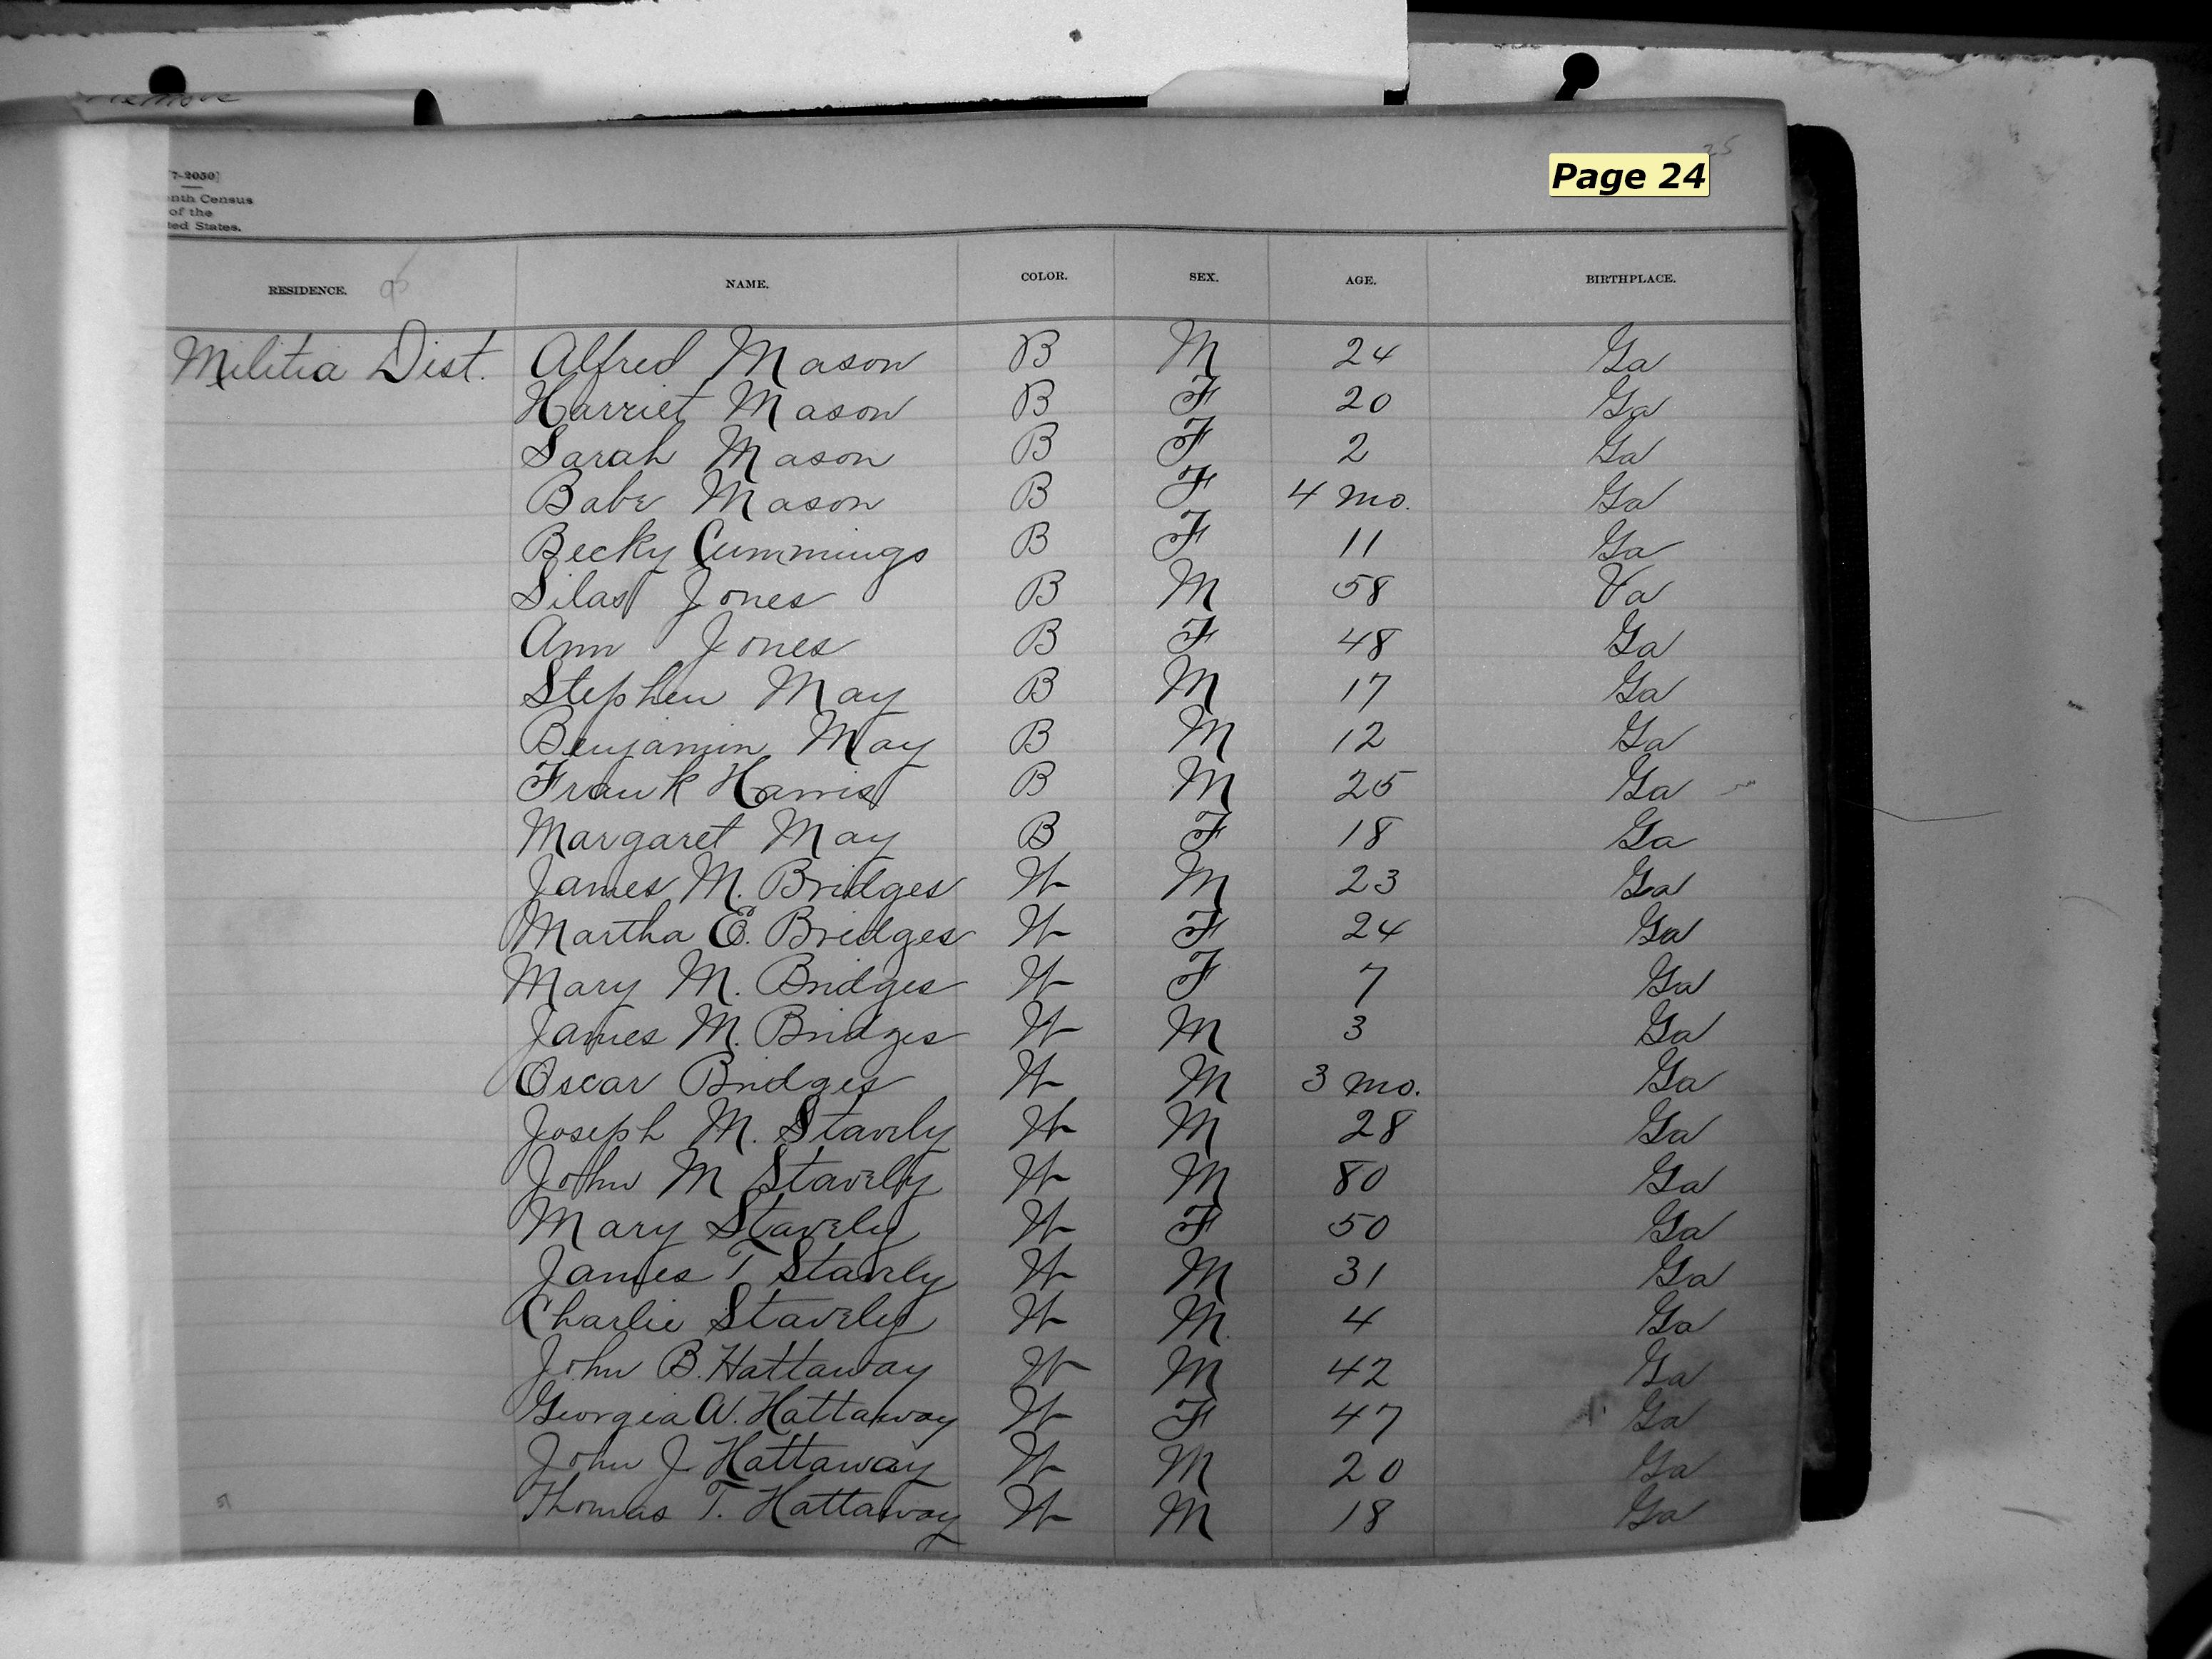 remove
25
Page 24
7-2050]
nth Census
of the
ted States.
RESIDENCE. NAME. COLOR. SEX. AGE. BIRTHPLACE.
Militia Dist. Alfred Mason B M 24 Ga
Harriet Mason B F 20 Ga
Sarah Mason B F 2 Ga
Babe Mason B F 4 mo. Ga
Becky Cummings B F 11 Ga
Silas Jones B M 58 Va
Ann Jones B F 48 Ga
Stephen May B M 17 Ga
Benjamin May B M 12 Ga
Frank Harris B M 25 Ga
Margaret May B F 18 Ga
James M. Bridges W M 23 Ga
Martha E. Bridges W F 24 Ga
Mary M. Bridges W F 7 Ga
James M. Bridges W M 3 Ga
Oscar Bridges W M 3 mo. Ga
Joseph M. Stavely W M 28 Ga
John M Stavely W M 80 Ga
Mary Stavely W F 50 Ga
James T Stavely W M 31 Ga
Charlie Stavely W M. 4 Ga
John B. Hattaway W M 42 Ga
Georgia A. Hattaway W F 47 Ga
John J. Hattaway W M 20 Ga
Thomas T. Hattaway W M 18 Ga